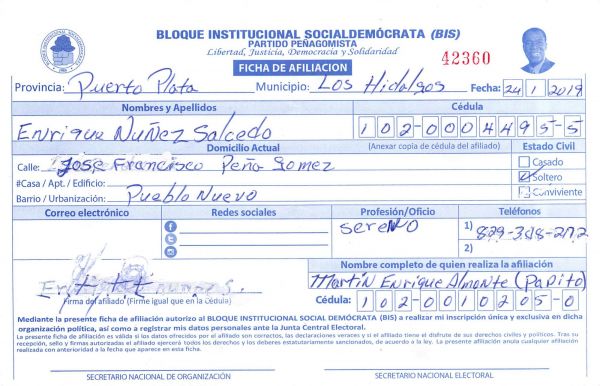 BLOQUE INSTITUCIONAL SOCIALDEMÓCRATA (BIS)
PARTIDO PEÑAGOMISTA
Libertad, Justicia, Democracia y Solidaridad
FICHA DE AFILIACION
42360
Provincia: Puerto Plata Municipio: Los Hidalgos Fecha: 24 1 2019
Nombres y Apellidos Cédula
Enrique Nuñez Salcedo 102-0004495-5
Domicilio Actual (Anexar copia de cédula del afiliado) Estado Civil
Calle: Jose Francisco Peña Gomez Casado
#Casa / Apt. / Edificio: Soltero
Barrio / Urbanización: Pueblo Nuevo Conviviente
Correo electrónico Redes sociales Profesión/Oficio Teléfonos
sereno 1)
2)
Nombre completo de quien realiza la afiliación
Martin Enrique Almonte (Papito)
Firma del afiliado (Firme igual que en la Cédula) Cédula: 102-0010205-0
Mediante la presente ficha de afiliación autorizo al BLOQUE INSTITUCIONAL SOCIAL DEMÓCRATA (BIS) a realizar mi inscripción única y exclusiva en dicha
organización política, así como a registrar mis datos personales ante la Junta Central Electoral.
La presente ficha de afiliación es válida si los datos ofrecidos por el afiliado son correctos, las declaraciones veraces y si el afiliado tiene el disfrute de sus derechos civiles y políticos. Tras su
recepción, sello y firmas autorizadas el afiliado ejercerá todos los derechos y los deberes estatutariamente sancionados, de acuerdo a la ley. La presente afiliación anula cualquier afiliación
realizada con anterioridad a la fecha que aparece en esta ficha.
SECRETARIO NACIONAL DE ORGANIZACIÓN SECRETARIO NACIONAL ELECTORAL